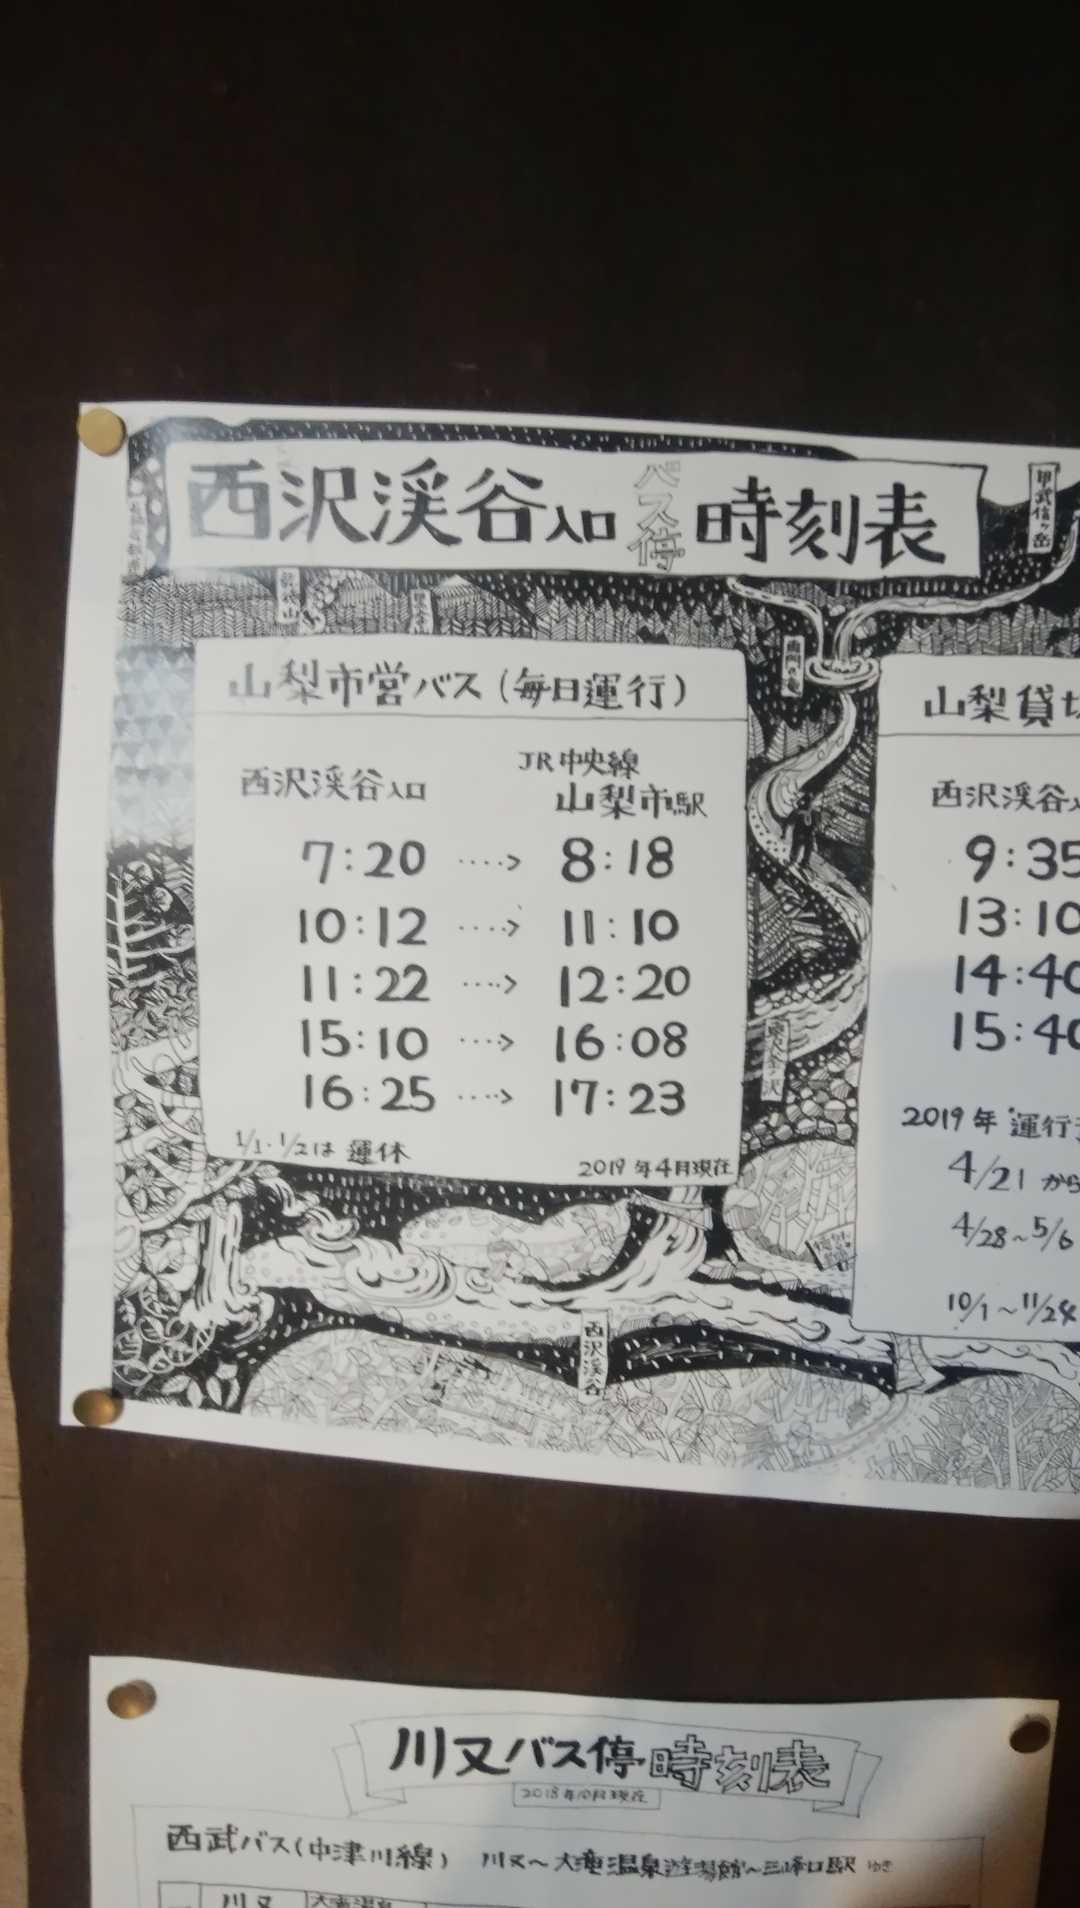 西沢渓谷入口 バス停 時刻表
甲武信ヶ岳
山梨市営バス (毎日運行)
西沢渓谷入口 JR中央線 山梨市駅
7:20 ····> 8:18
10:12 ····> 11:10
11:22 ····> 12:20
15:10 ····> 16:08
16:25 ····> 17:23
1/1・1/2は 運休
2019年4月現在
山梨貸
西沢渓谷
9:35
13:10
14:40
15:40
2019年 運行
4/21 から
4/28~5/6
10/1~11/24
西沢渓谷
川又バス停時刻表
2018年10月現在
西武バス(中津川線) 川又~大滝温泉遊湯館~三峰口駅 ゆき
川又 大滝温泉